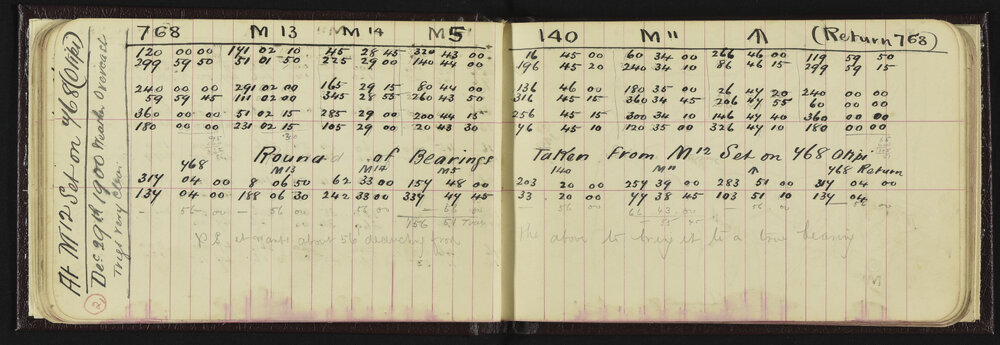 At M12 Set on 768 (Otipi)
Dec 29th 1900 Weather Overcast
Trigs very Clear
2
768 M 13 M 14 M5 140 M" (Return 768)
120 00 00 141 02 10 45 28 45 320 43 00 16 45 00 60 34 00 266 46 00 119 59 50
299 59 50 51 01 50 225 29 00 140 44 00 196 45 20 240 34 10 86 46 15 299 59 15
240 00 00 291 02 00 165 29 15 80 44 00 136 46 00 180 35 00 26 47 20 240 00 00
59 59 45 111 02 00 345 28 55 260 43 50 316 45 15 360 34 45 206 47 55 60 00 00
360 00 00 51 02 15 285 29 00 200 44 15 256 45 15 300 34 10 146 47 40 360 00 00
180 00 00 231 02 15 105 29 00 20 43 30 76 45 10 120 35 00 326 47 10 180 00 00
Round of Bearings Taken From M12 Set on 768 Otipi
768 M13 M14 M5 140 M" 768 Return
317 04 00 8 06 50 62 33 00 157 48 00 203 20 00 257 39 00 283 51 00 317 04 00
137 04 00 188 06 30 242 33 00 337 47 45 33 20 00 77 38 45 103 51 10 137 04
56 00 56 00 56 00 56 00 56 00 56 00
156 51 True
P.S. it wants about 56 deducting from the above to bring it to a true bearing